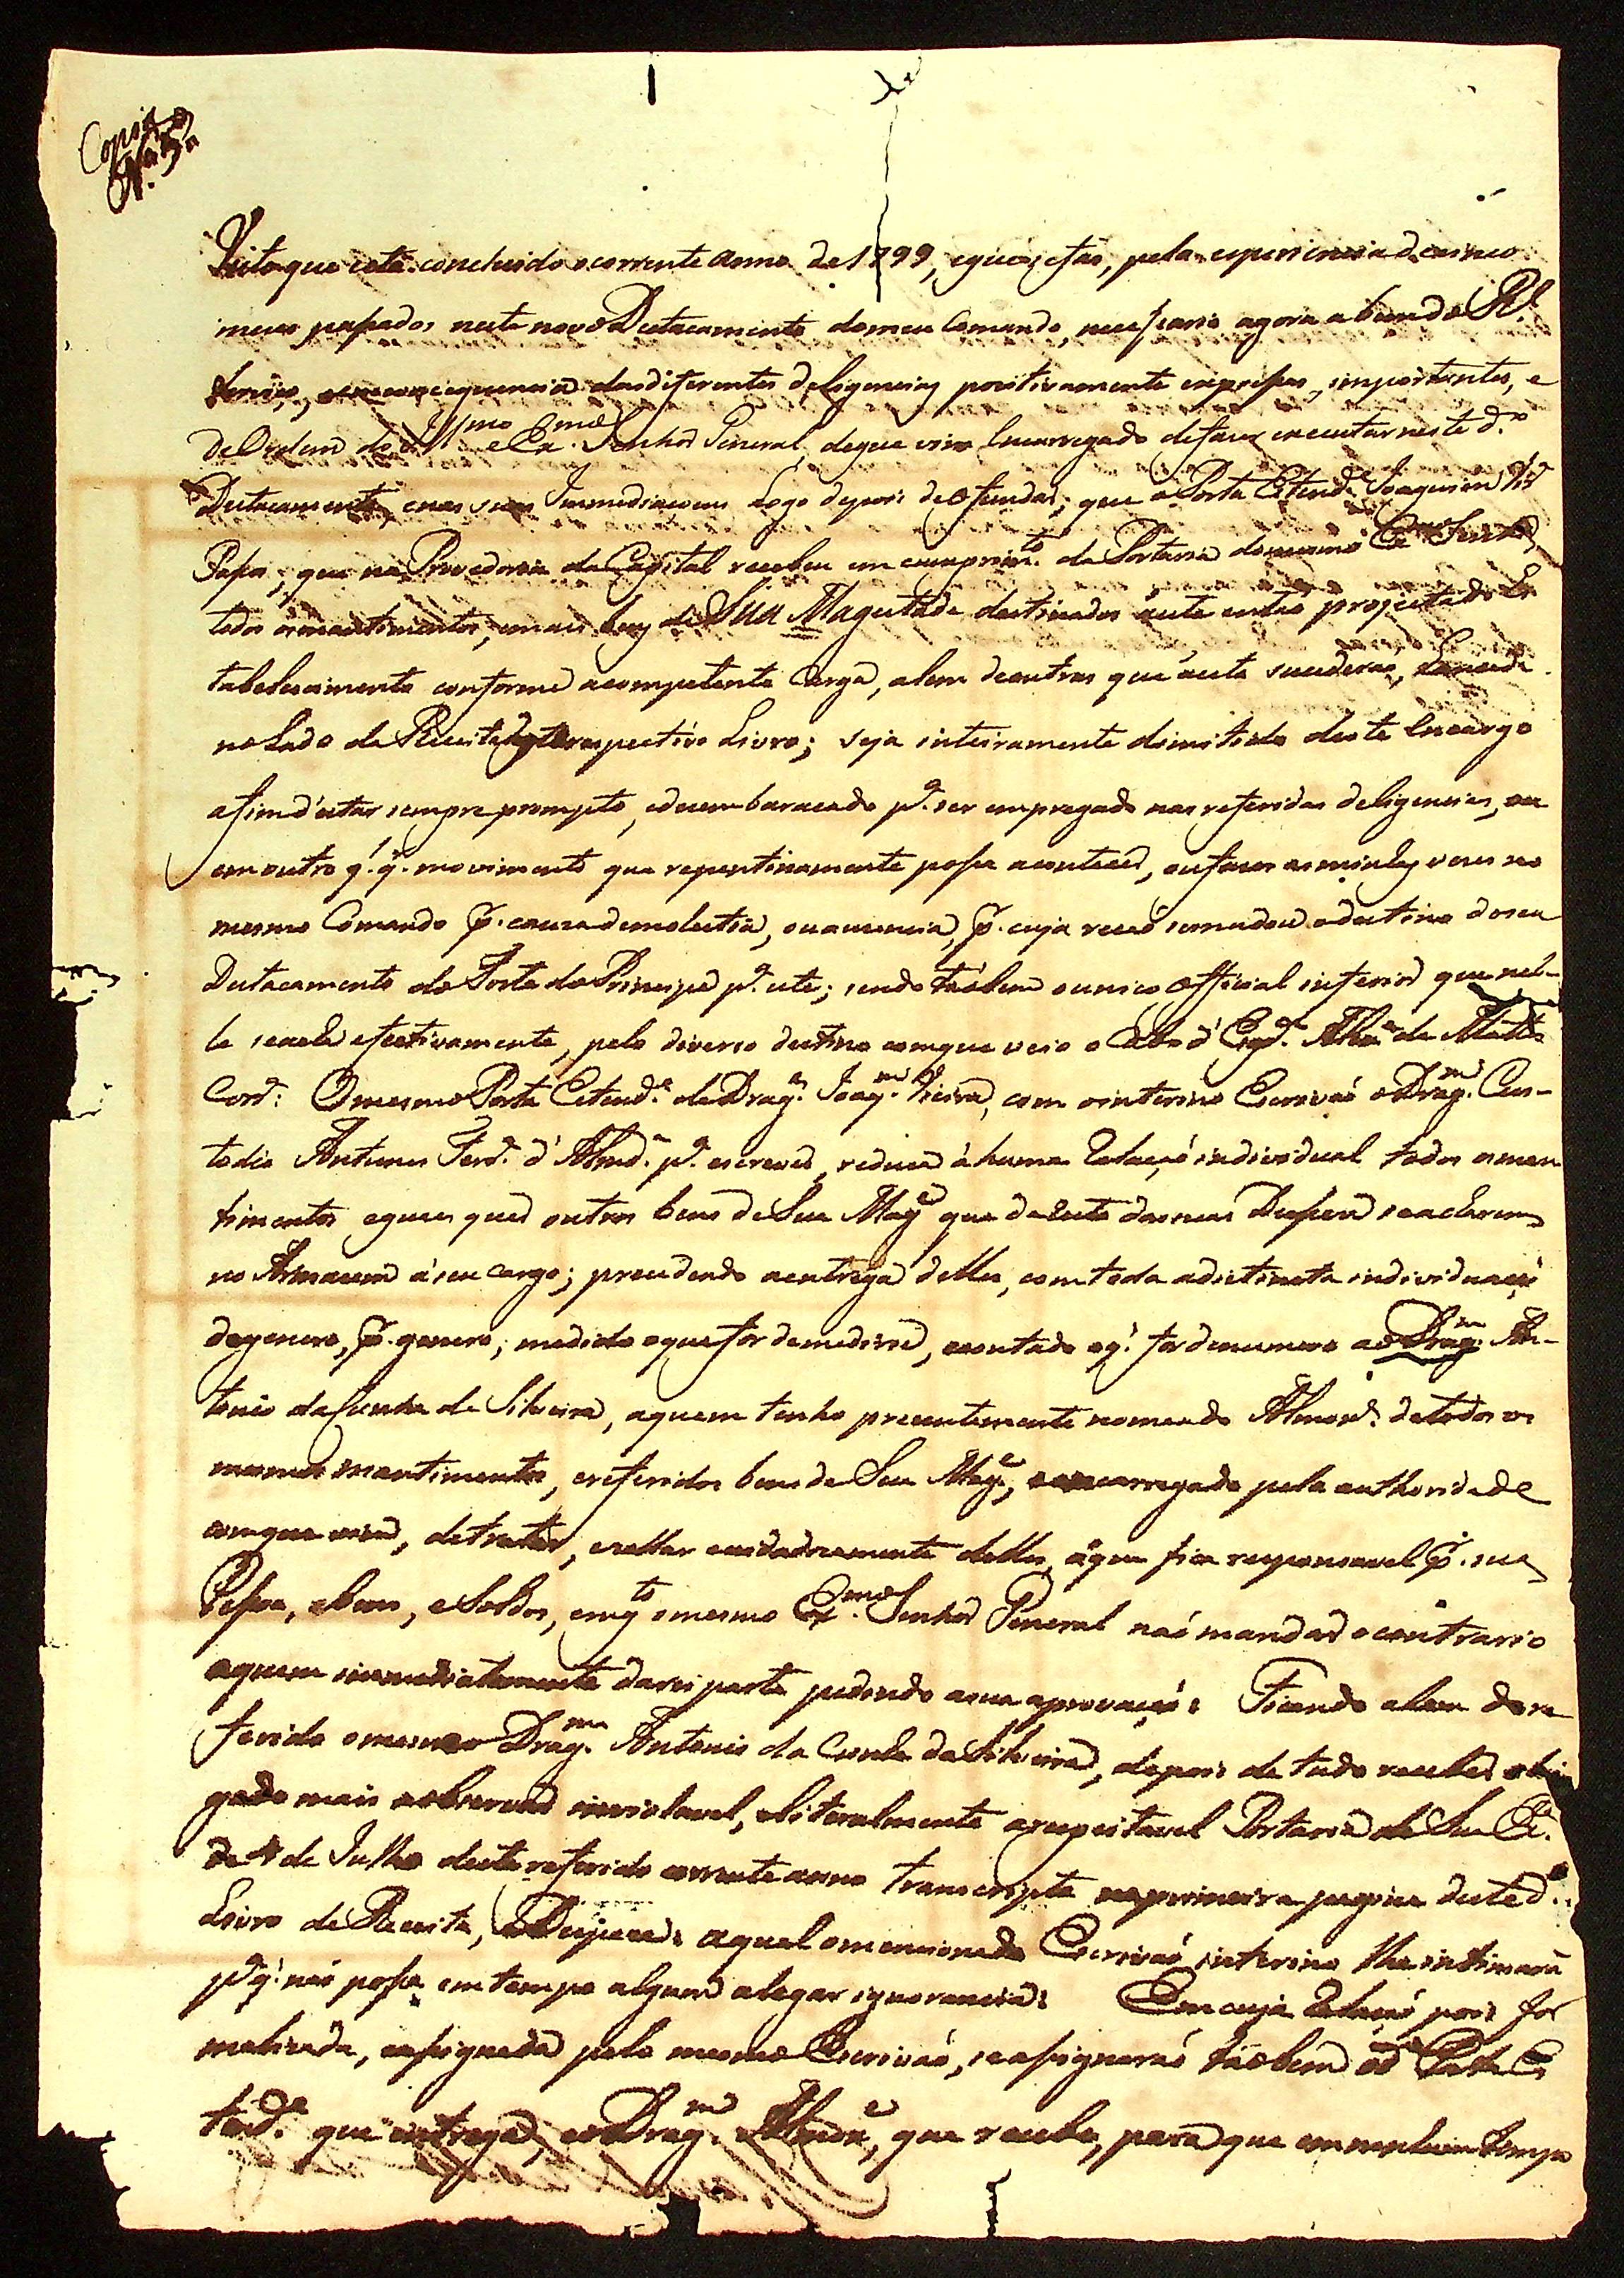 Copia
N.
Visto que está concluido o corrente anno de 1799, e que se fas, pela experiencia de cinco
mezes passados neste novo Destacamento do meu Comando, necessario agora a bem do R.l
Serviço, e em consequencia das diferentes deligencias positivamente expressas, importantes, e
de Ordem do Ill.mo e Ex.mo Senhor General, de que vim Encarregado de fazer executar neste d.o
Destacamento, e nas suas Immediaçoens logo depois de o fundar; que o Porta Estend.e Joaquim Vr.a
Passos, que na Provedoria da Capital recebeu em cumprim.to da Portaria do mesmo Ex.mo Senhor
todos os mantimentos, e mais bens de Sua Magestade destinados a este então projectado Es
tabelecimento conforme a competente Carga, alem de outras que a esta sucederaó, lançada
no Lado da Receita deste respectivo Livro; seja inteiramente dimitido deste Encargo
afim d'estar sempre prompto, e desembaraçado p.a ser empregado nas referidas deligencias, ou
em outro q.l q.r movimento que repentinamente possa acontecer, ou fazer as minhas vezes no
mesmo Comando p. cauza de molestia, ou auzencia, p. cuja rezaó se mudou o destino do seu
Destacamento do Forte do Principe p.a este; sendo taóbem o unico Official inferior que nel-
le se acha efectivamente, pelo diverso destino com que veio o Cabo d'Esq.a de Mattos
Cord.o O mesmo Porta Estend.e de Drag.s Joaq.m Vieira, com o interino Escrivaó o Drag.m Cus-
todio Antunes Ferr.a d'Almd.a p.a escrever, reduza á huma Relaçaó individual todos os man
timentos e quaes quer outros bens de Sua Mag.e que da Resta das suas Despeza se acharem
no Armazem á seu cargo; procedendo a entrega delles, com toda a distincta individuaçaó
de genero, p. genero; medido o que for de medir-se, e contado o q. for de numero ao Drag.m An-
tonio da Cunha da Silveira, a quem tenho prezentemente nomeado Almox.e de todos os
mesmos mantimentos, e referidos bens de Sua Mag.e, e encarregado pela authoridade
com que vim, de tratar, e zellar cuidadozamente delles, á que fica responsavel p. sua
Pessoa, e bens, e Soldos, emq.to o mesmo Ex.mo Senhor General naó mandar o contrario
a quem immediatamente darei parte pedindo a sua aprovaçaó: Ficando alem do re-
ferido o mesmo Drag.m Antonio da Cunha da Silveira, depois de tudo receber, obri
gado mais a observar inviolavel, e literalmente a respeitavel Portaria de Sua Ex.a
de 4 de Julho deste referido corrente anno transcripta na primeira pagina deste d.o
Livro de Receita, e Despeza: a qual o mencionado Escrivaó interino lhe intimará
p.a q. naó possa em tempo algum alegar ignorancia: Em cuja Relaçaó pois for
malizada, e assignada pelo mesmo Escrivaó, se assignaráo taóbem o d.o Porta Es
tend.e que entrega, e o Drag.m Almox.e, que recebe, para que em nenhum tempo